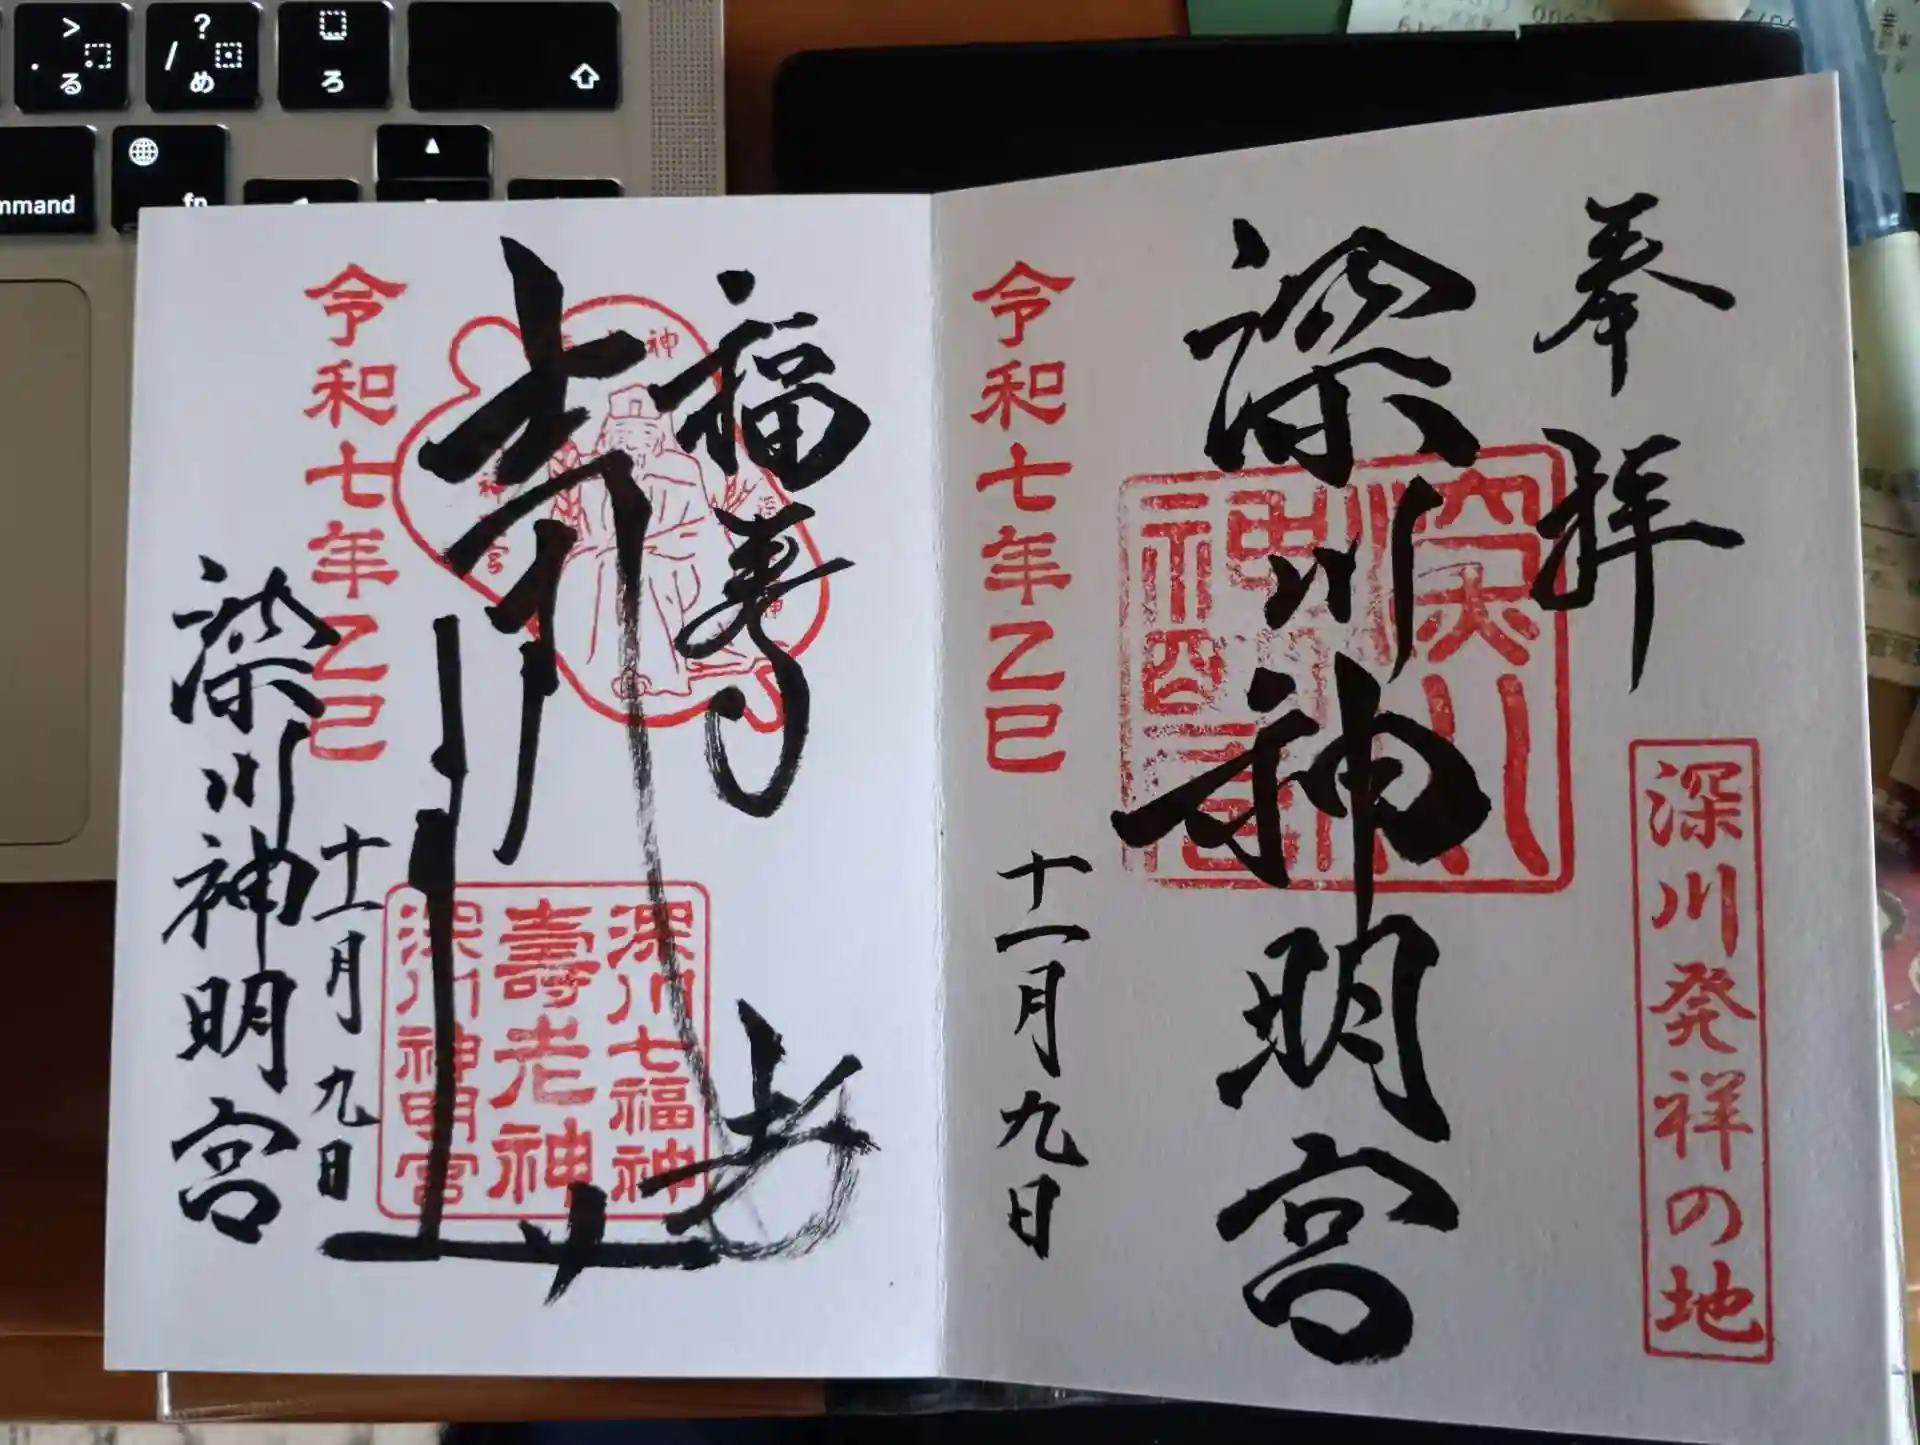 奉拝
深川発祥の地
深川神明宮
令和七年乙巳
十一月九日
福寿
深川七福神
壽老神
深川神明宮
令和七年乙巳
十一月九日
深川神明宮
>
.
る
?
/
め
ろ
mmand
fn